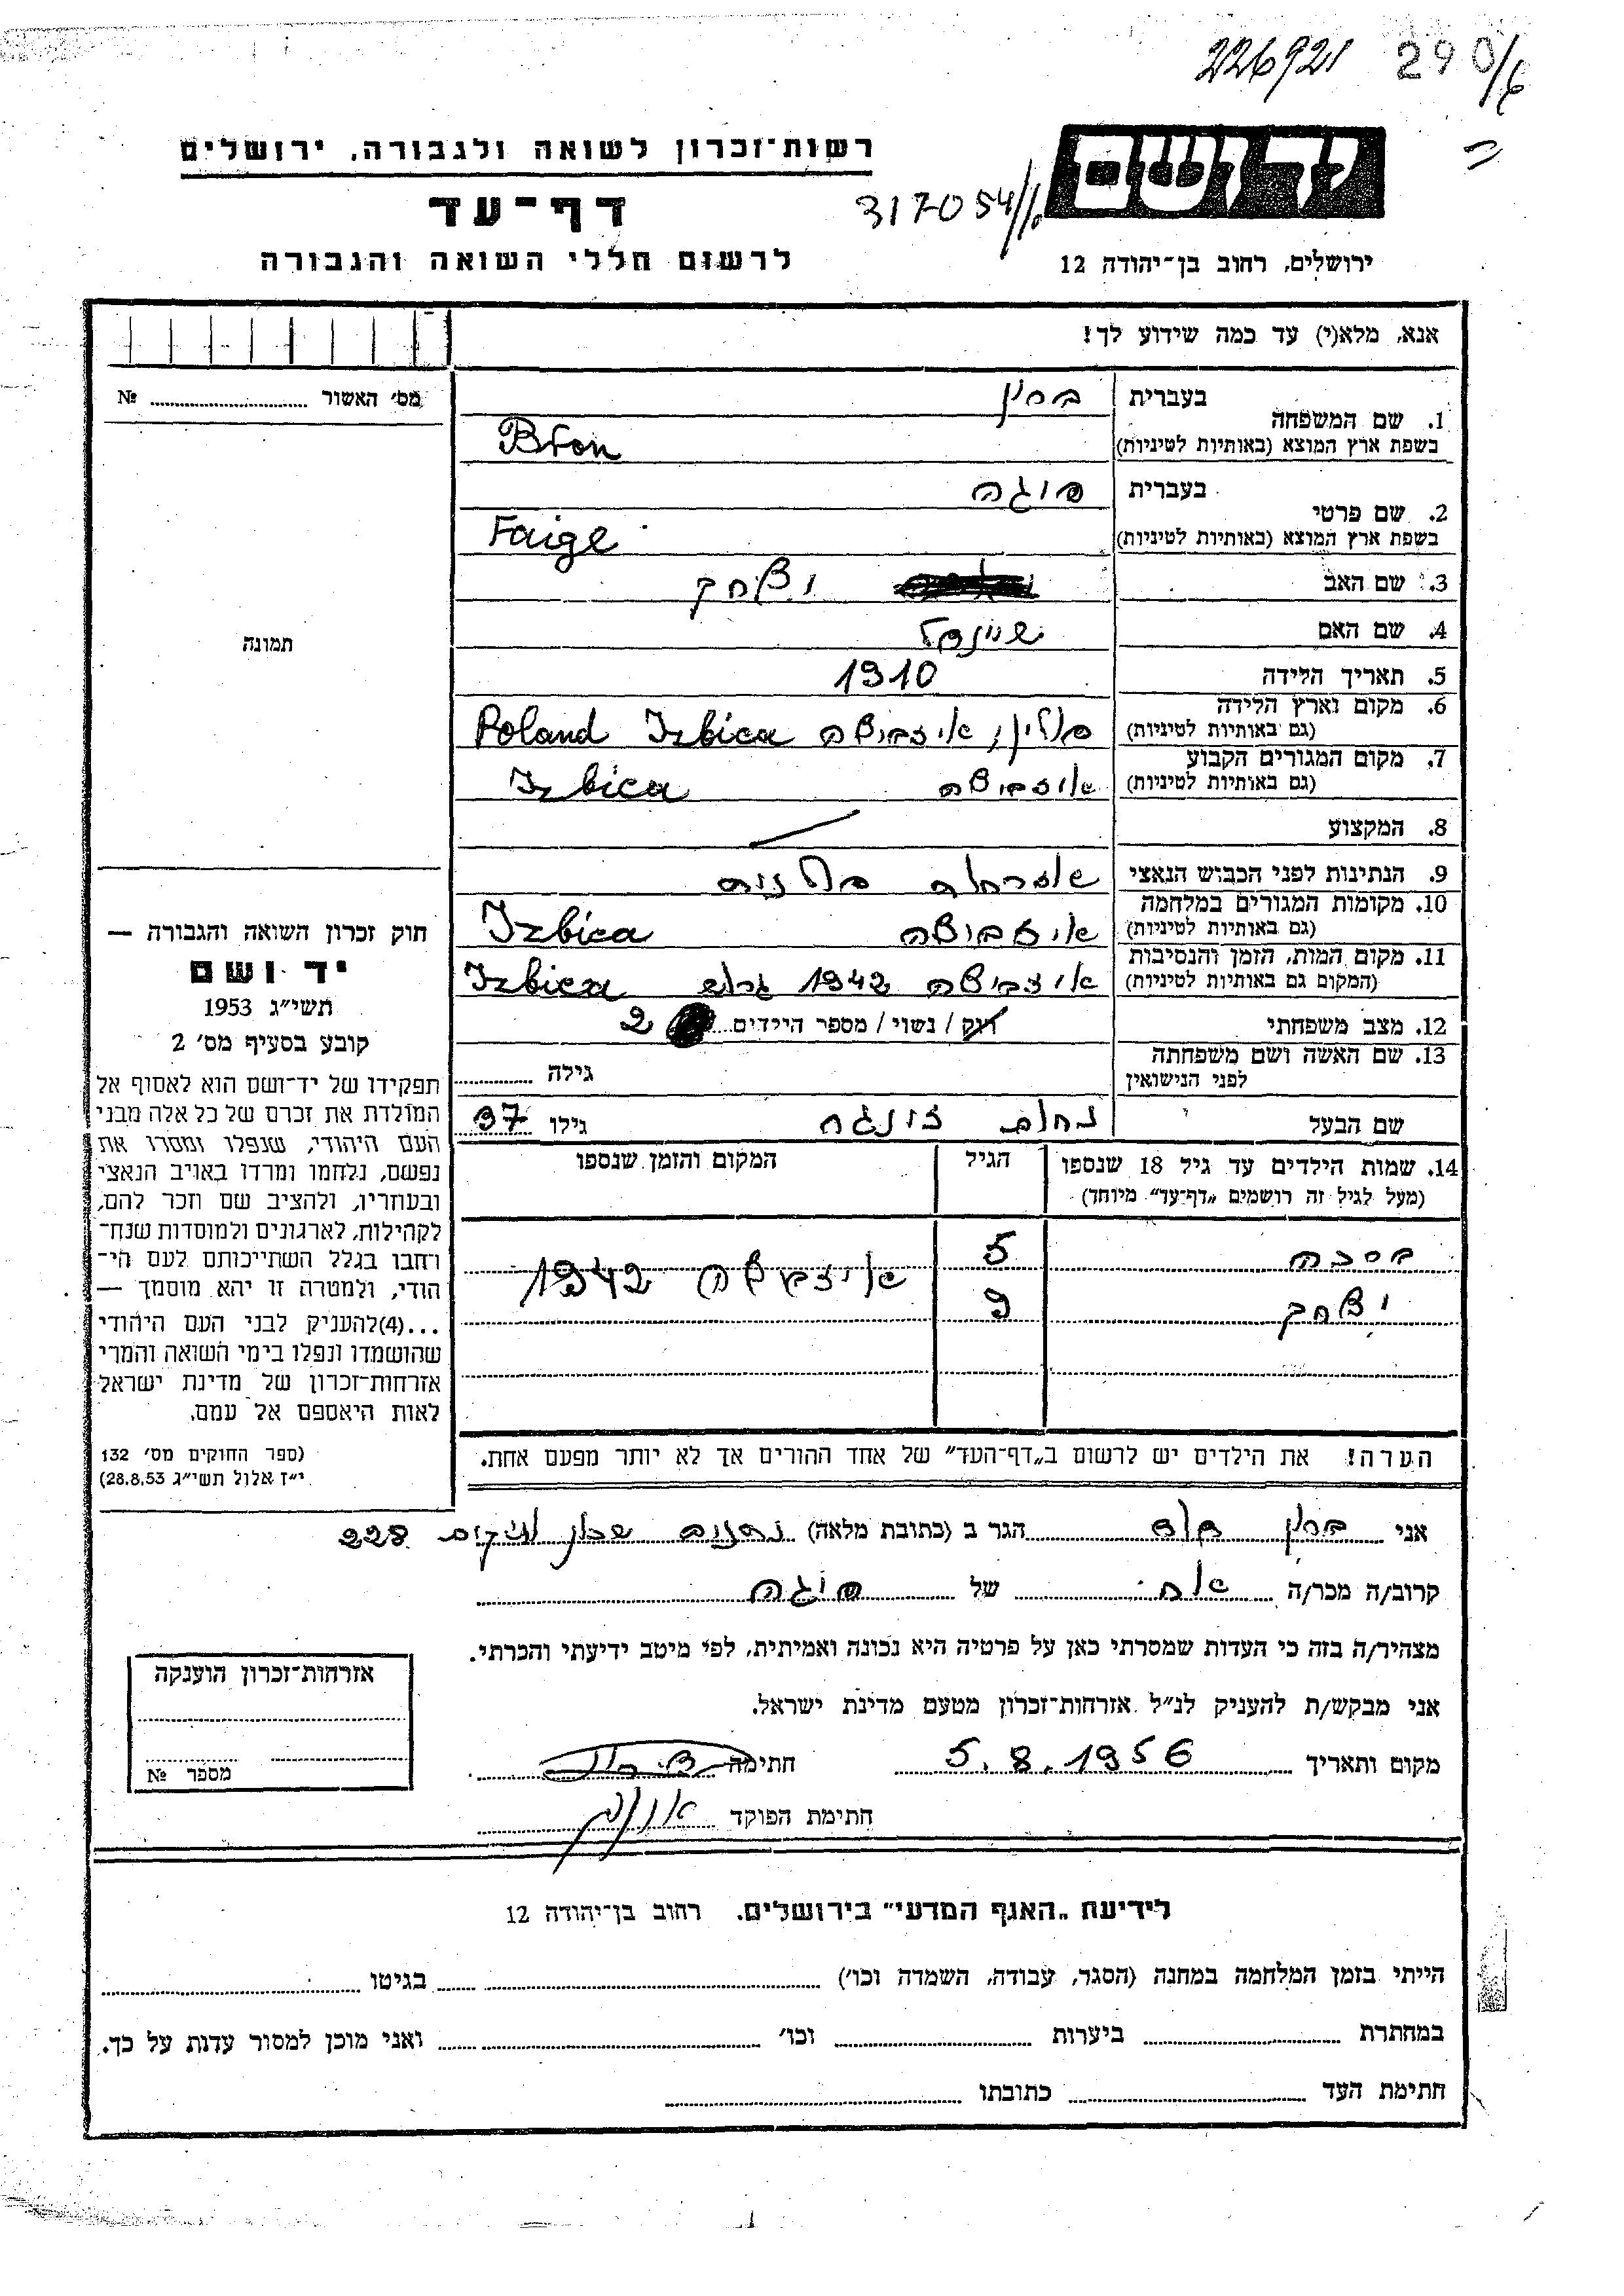 226921 290/6
רשות־זכרון לשואה ולגבורה, ירושלים
יד ושם
דף־עד
317054/10
לרשום חללי השואה והגבורה
ירושלים, רחוב בן־יהודה 12
אנא, מלא(י) עד כמה שידוע לך!
מס׳ האשור № 
1. שם המשפחה
בעברית
ברון
בשפת ארץ המוצא (באותיות לטיניות)
Bron
2. שם פרטי
בעברית
פיגה
בשפת ארץ המוצא (באותיות לטיניות)
Faige
3. שם האב
יצחק
4. שם האם
שיינדל
5. תאריך הלידה
1910
6. מקום וארץ הלידה
(גם באותיות לטיניות)
פולין, איזביצה Poland Izbica
7. מקום המגורים הקבוע
(גם באותיות לטיניות)
איזביצה Izbica
8. המקצוע
9. הנתינות לפני הכבוש הנאצי
10. מקומות המגורים במלחמה
(גם באותיות לטיניות)
איזביצה Izbica
11. מקום המות, הזמן והנסיבות
(המקום גם באותיות לטיניות)
איזביצה 1942 Izbica
12. מצב משפחתי
רוק / נשוי / מספר הילדים 2
13. שם האשה ושם משפחתה
לפני הנישואין
גילה
שם הבעל
גילו 37
14. שמות הילדים עד גיל 18 שנספו
(מעל לגיל זה רושמים „דף־עד״ מיוחד)
הגיל
המקום והזמן שנספו
5
איזביצה 1942
יצחק 9
הערה! את הילדים יש לרשום ב„דף־העד״ של אחד ההורים אך לא יותר מפעם אחת.
תמונה
חוק זכרון השואה והגבורה —
יד ושם
תשי״ג 1953
קובע בסעיף מס׳ 2
תפקידו של יד־ושם הוא לאסוף אל
המולדת את זכרם של כל אלה מבני
העם היהודי, שנפלו ומסרו את
נפשם, נלחמו ומרדו באויב הנאצי
ובעוזריו, ולהציב שם וזכר להם,
לקהילות, לארגונים ולמוסדות שנח־
רבו בגלל השתייכותם לעם הי־
הודי, ולמטרה זו יהא מוסמך —
...(4)להעניק לבני העם היהודי
שהושמדו ונפלו בימי השואה והמרי
אזרחות־זכרון של מדינת ישראל
לאות היאספם אל עמם.
(ספר החוקים מס׳ 132
י״ז אלול תשי״ג 28.8.53)
אני ברון הגר ב (כתובת מלאה) שכון ותיקים 228
קרוב/ה מכר/ה אח של פיגה
מצהיר/ה בזה כי העדות שמסרתי כאן על פרטיה היא נכונה ואמיתית, לפי מיטב ידיעתי והכרתי.
אני מבקש/ת להעניק לנ״ל אזרחות־זכרון מטעם מדינת ישראל.
מקום ותאריך 5.8.1956 חתימה
חתימת הפוקד
אזרחות־זכרון הוענקה
מספר №
לידיעת „האגף המדעי״ בירושלים, רחוב בן־יהודה 12
הייתי בזמן המלחמה במחנה (הסגר, עבודה, השמדה וכו׳) בגיטו
במחתרת ביערות וכו׳ ואני מוכן למסור עדות על כך.
חתימת העד כתובתו